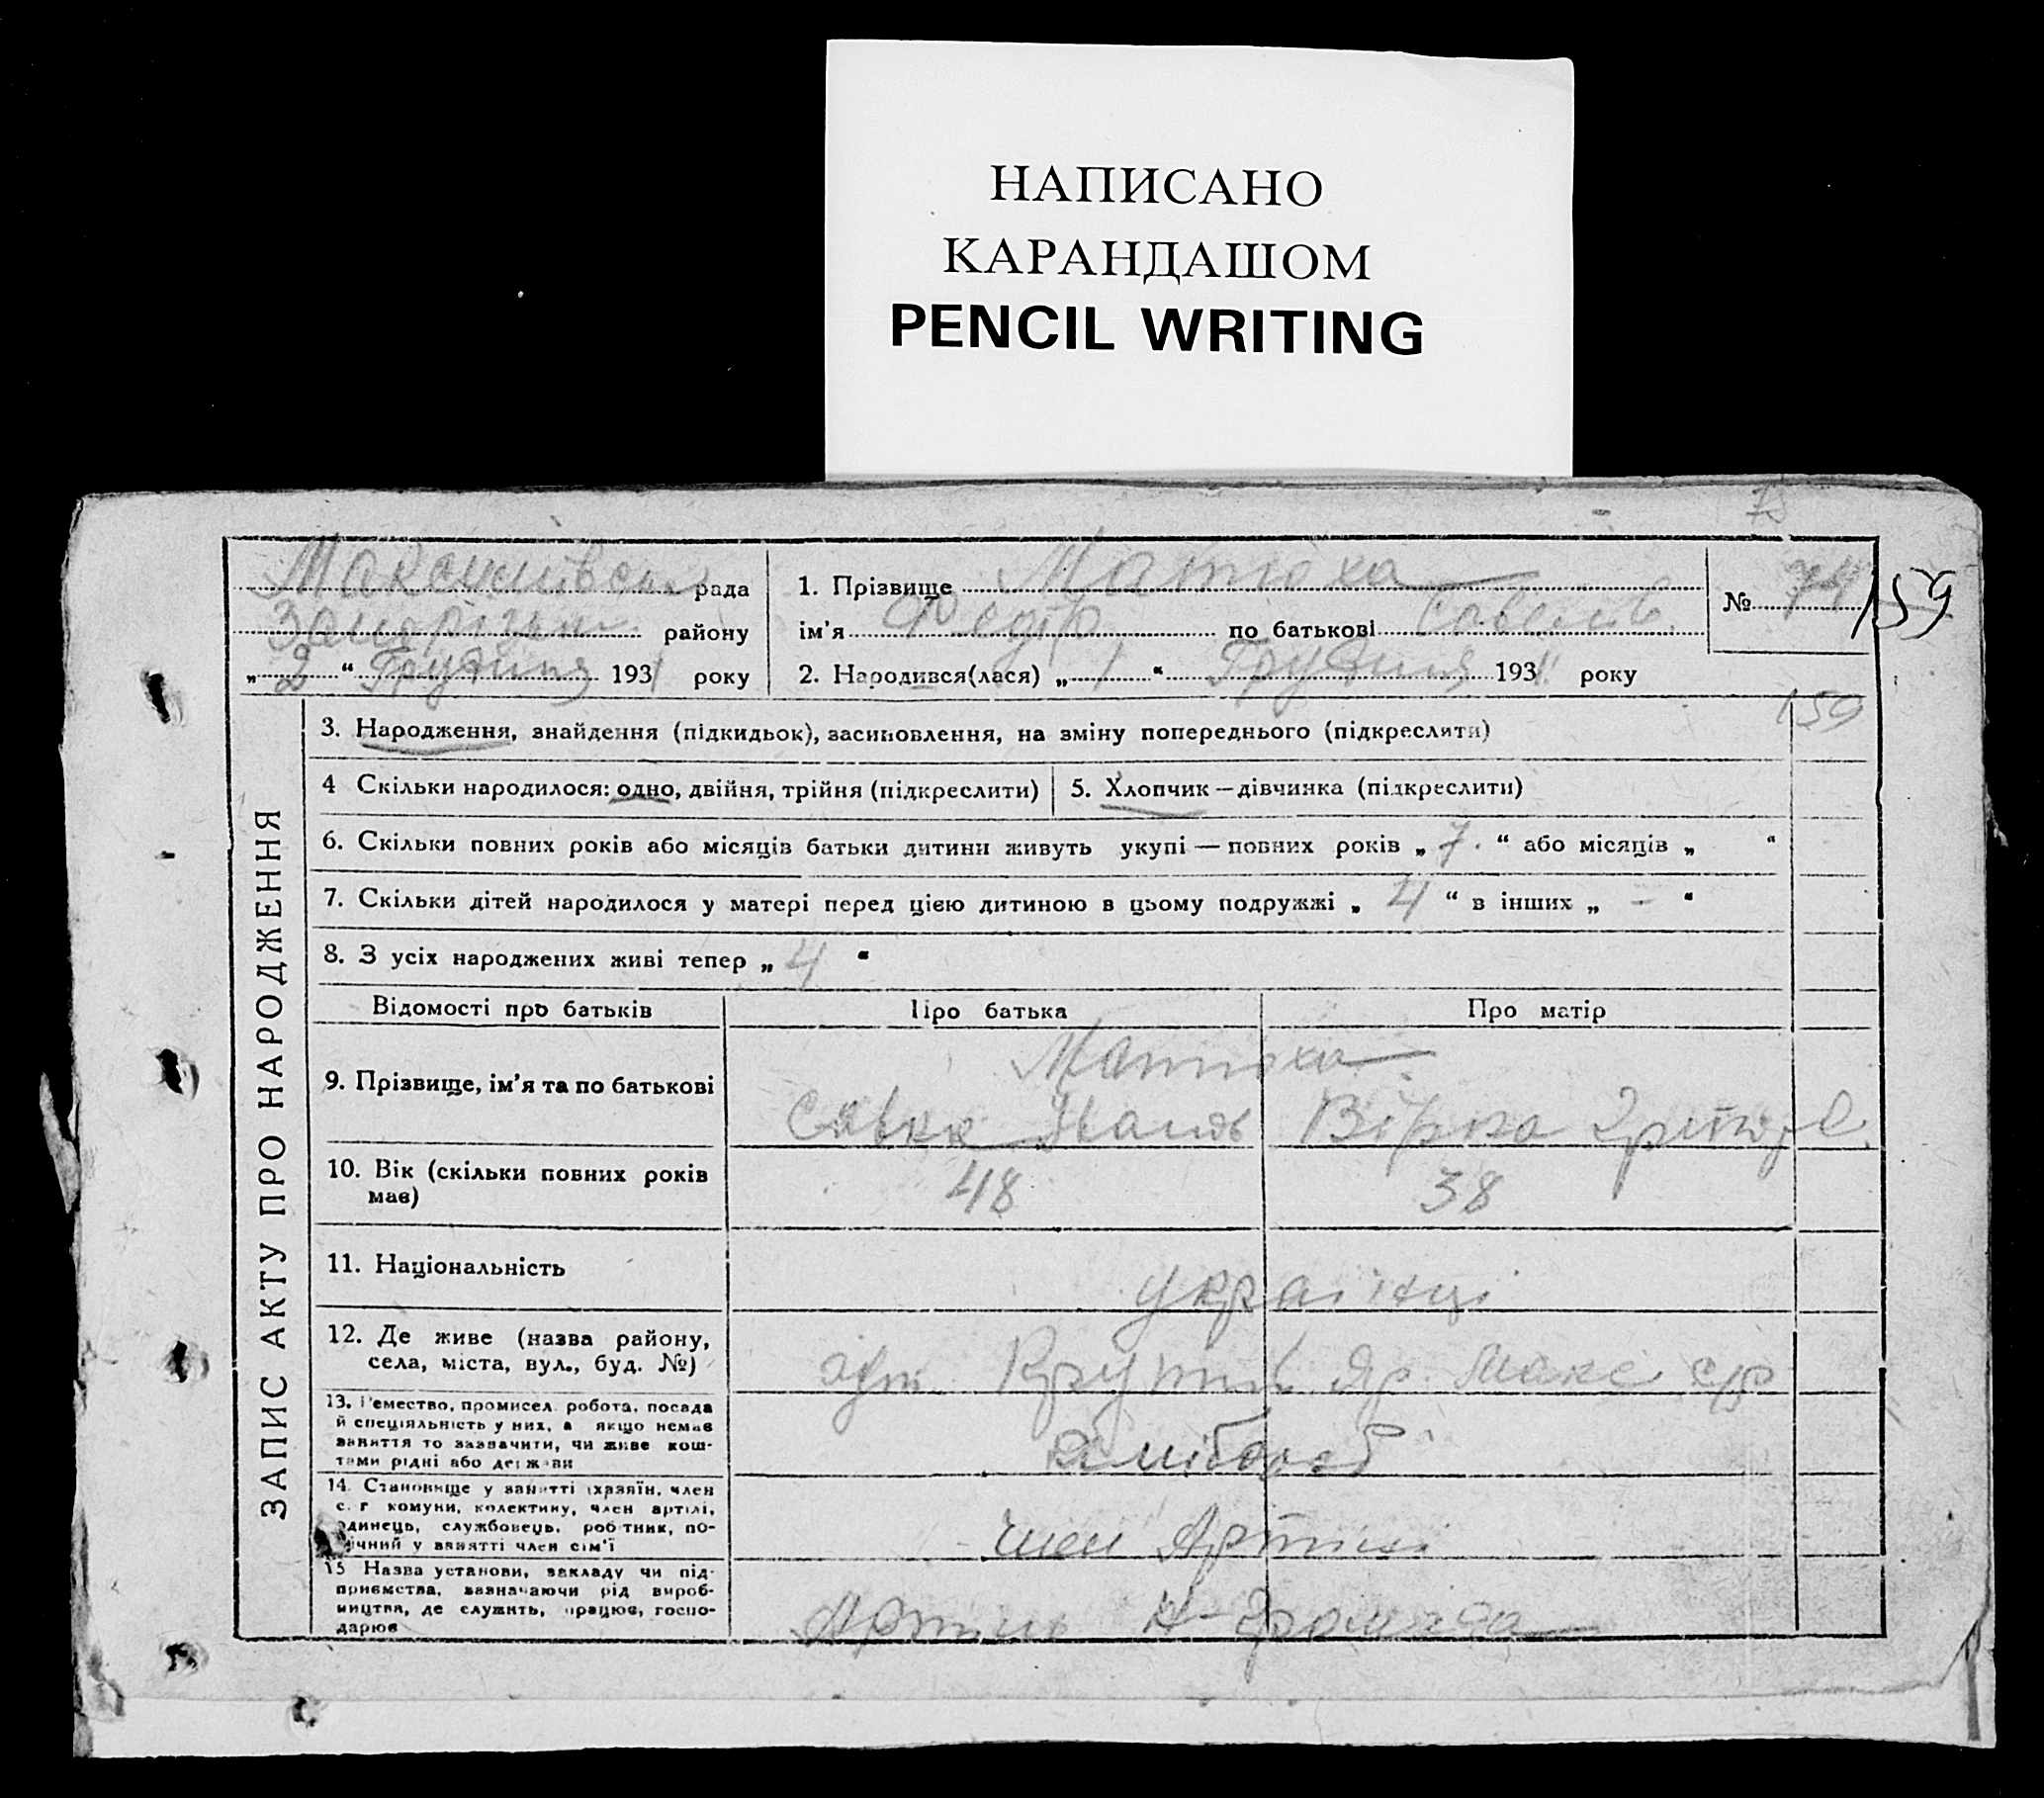 НАПИСАНО
КАРАНДАШОМ
PENCIL WRITING
75
Максимівська рада
Запорізьк району
„2“ Грудня 1931 року
1. Прізвище Матюха
ім'я Федір по батькові Савелів
2. Народився(лася) „1“ Грудня 1931 року
№ 74
159
159
ЗАПИС АКТУ ПРО НАРОДЖЕННЯ
3. Народження, знайдення (підкидьок), засиновлення, на зміну попереднього (підкреслити)
4 Скільки народилося: одно, двійня, трійня (підкреслити)
5. Хлопчик — дівчинка (підкреслити)
6. Скільки повних років або місяців батьки дитини живуть укупі — повних років „7.“ або місяців „ “
7. Скільки дітей народилося у матері перед цією дитиною в цьому подружжі „4“ в інших „-“
8. З усіх народжених живі тепер „4“
Відомості про батьків Про батька Про матір
9. Прізвище, ім'я та по батькові
Матюха
Савка Іванов Вірка
10. Вік (скільки повних років
має)
48 38
11. Національність
українці
12. Де живе (назва району,
села, міста, вул., буд. №)
Яр. Макс с/р
13. Ремество, промисел, робота, посада
й спеціяльність у них, а якщо немає
заняття то зазначити, чи живе кош-
тами рідні або держави
хлібороб
14. Становище у занятті (хазяїн, член
с. г комуни, колективу, член артілі,
одинець, службовець, робітник, по-
мічний у занятті член сім'ї
член Артілі
15 Назва установи, закладу чи під-
приємства, зазначаючи рід вироб-
ництва, де служить, працює, госпо-
дарює
Артіль Н-Громада